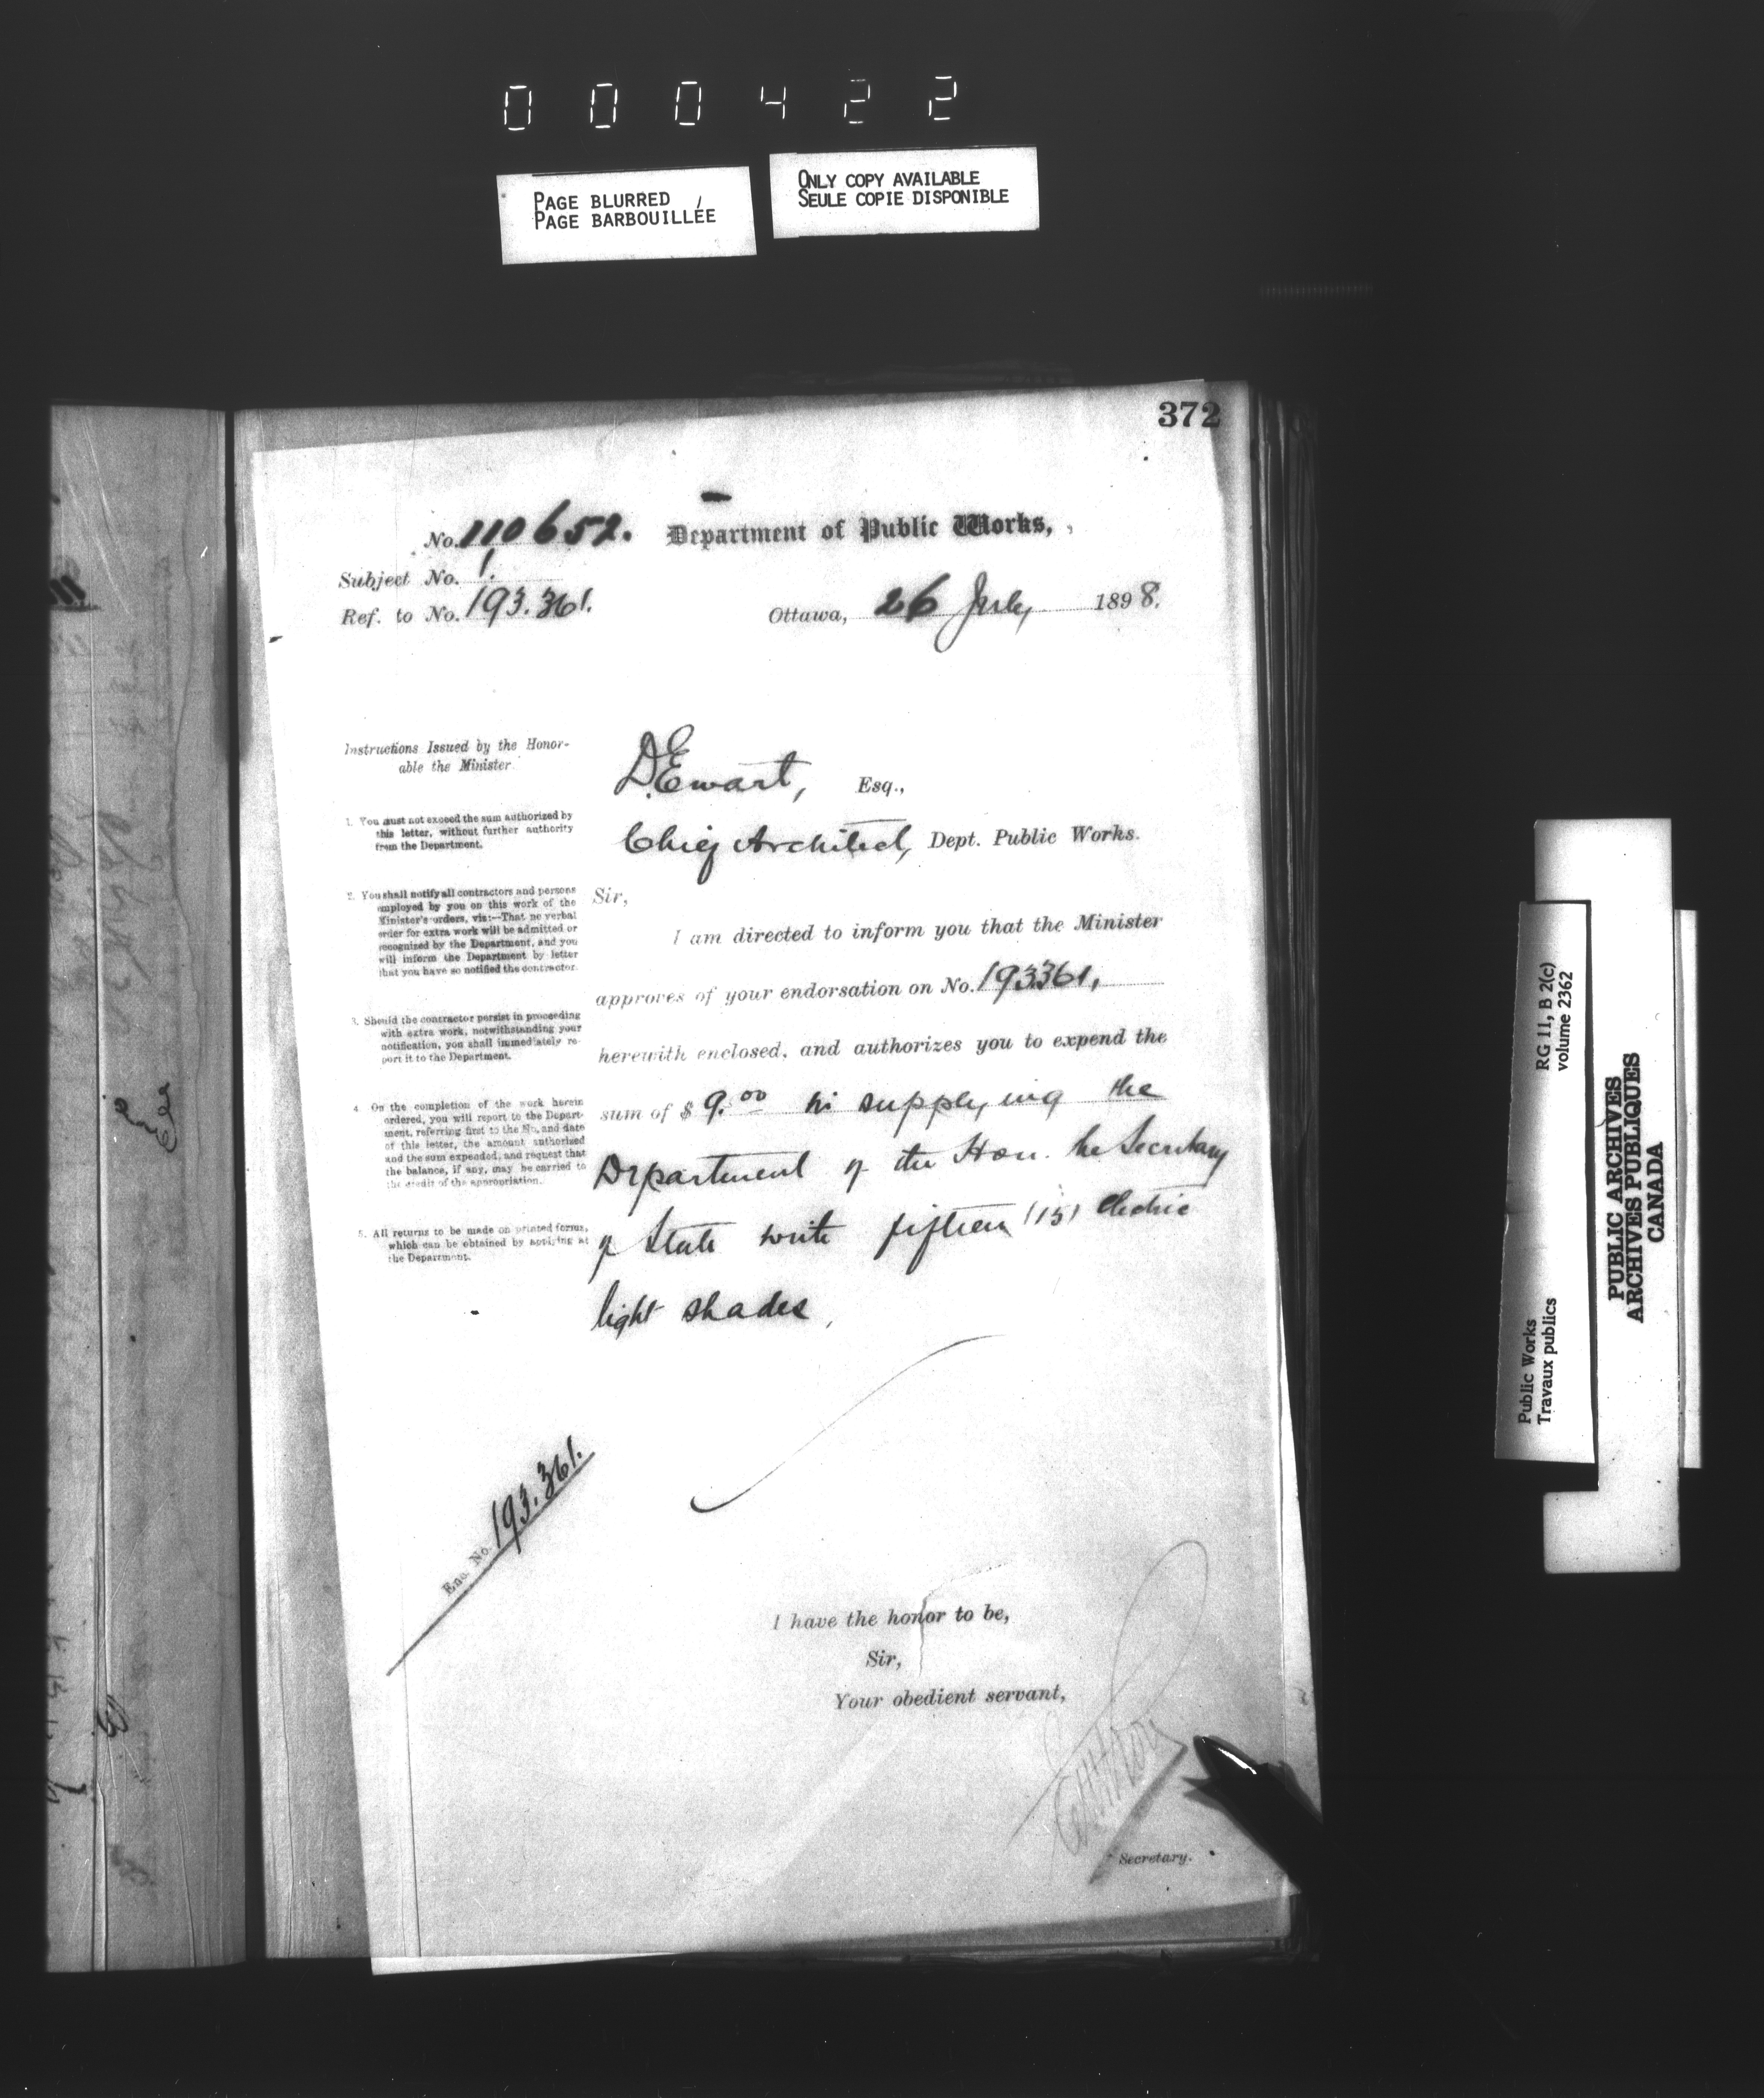 000422
PAGE BLURRED
PAGE BARBOUILLÉE
ONLY COPY AVAILABLE
SEULE COPIE DISPONIBLE
372
No. 110652. Department of Public Works,
Subject No. 1.
Ref. to No. 193.361.
Ottawa, 26 July 1898.
Instructions Issued by the Honor-
able the Minister
1. You must not exceed the sum authorized by
this letter, without further authority
from the Department.
2. You shall notify all contractors and persons
employed by you on this work of the
Minister's orders, viz:—That no verbal
order for extra work will be admitted or
recognized by the Department, and you
will inform the Department by letter
that you have so notified the contractor.
3. Should the contractor persist in proceeding
with extra work, notwithstanding your
notification, you shall immediately re-
port it to the Department.
4. On the completion of the work herein
ordered, you will report to the Depart-
ment, referring first to the No. and date
of this letter, the amount authorized
and the sum expended, and request that
the balance, if any, may be carried to
the credit of the appropriation.
5. All returns to be made on printed forms,
which can be obtained by applying at
the Department.
D. Ewart, Esq.,
Chief Architect, Dept. Public Works.
Sir,
I am directed to inform you that the Minister
approves of your endorsation on No. 193361,
herewith enclosed, and authorizes you to expend the
sum of $ 9.00 in supplying the
Department of the Hon. the Secretary
of State with fifteen (15) electric
light shades,
Enc. No. 193.361.
I have the honor to be,
Sir,
Your obedient servant,
Secretary.
Public Works
Travaux publics
RG 11, B 2(c)
volume 2362
PUBLIC ARCHIVES
ARCHIVES PUBLIQUES
CANADA